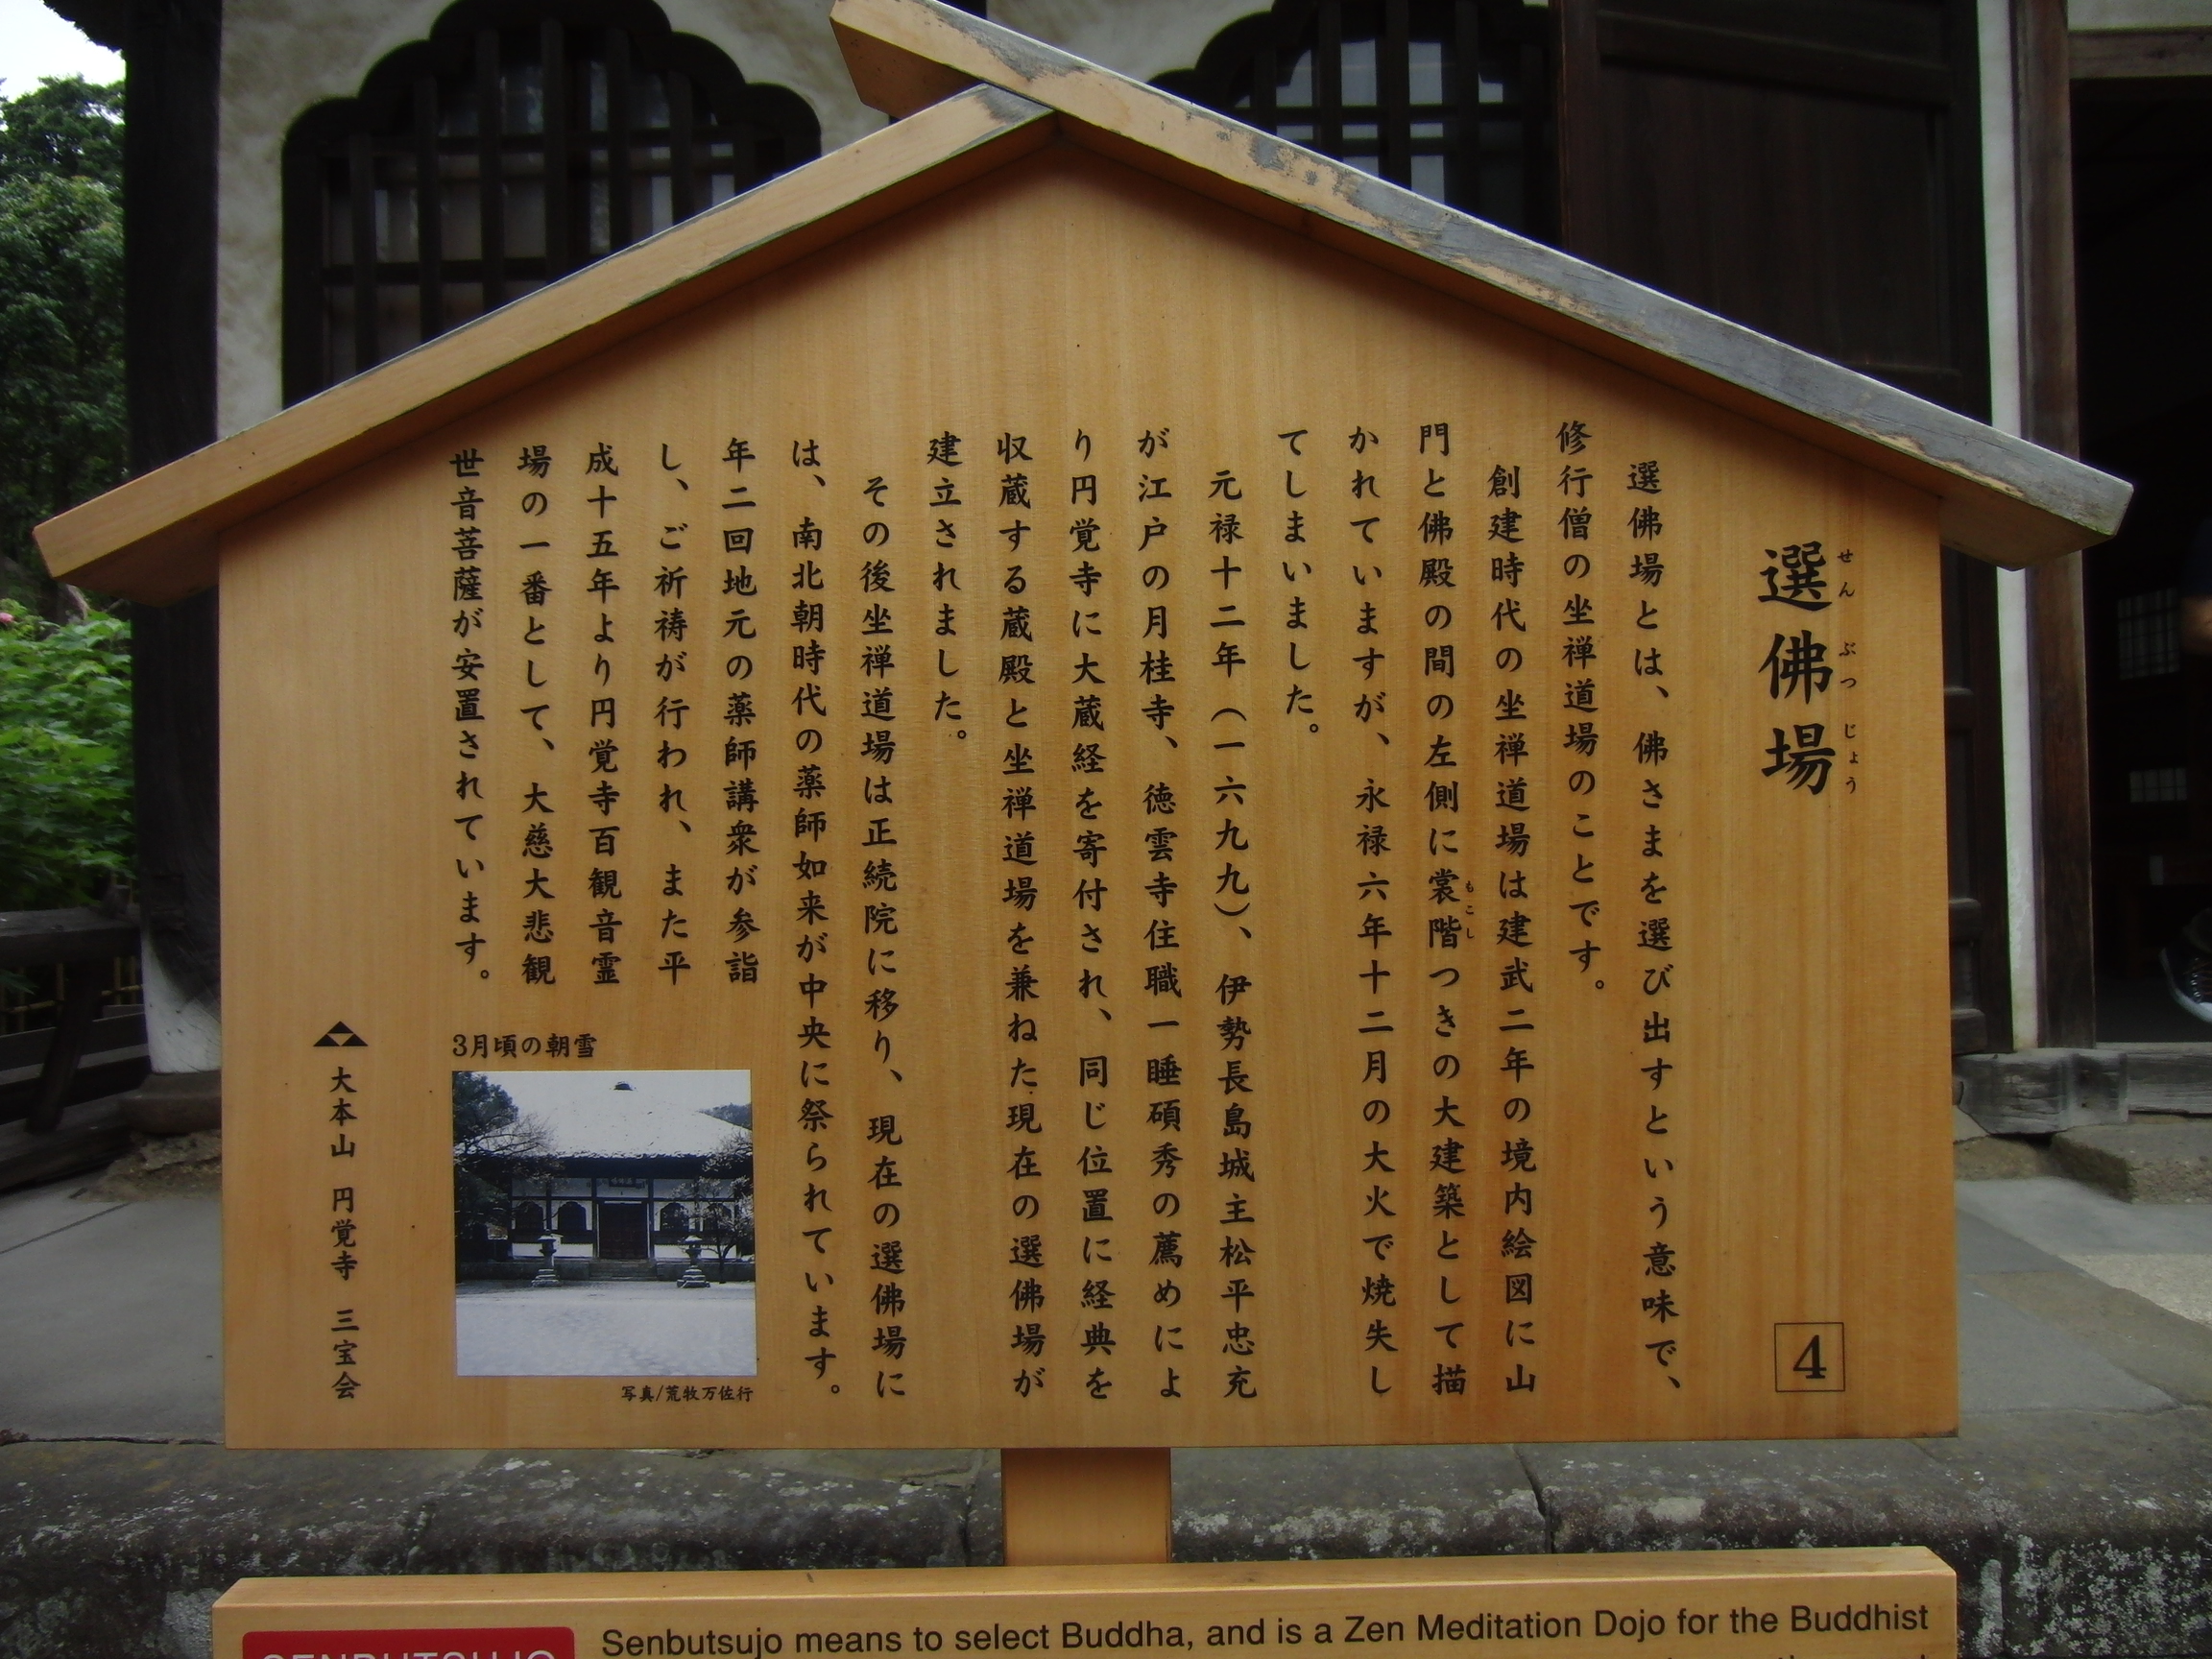 選佛場
せん ぶつ じょう
4
選佛場とは、佛さまを選び出すという意味で、
修行僧の坐禅道場のことです。
創建時代の坐禅道場は建武二年の境内絵図に山
門と佛殿の間の左側に裳階つきの大建築として描
もこし
かれていますが、永禄六年十二月の大火で焼失し
てしまいました。
元禄十二年（一六九九）、伊勢長島城主松平忠充
が江戸の月桂寺、徳雲寺住職一睡碩秀の薦めによ
り円覚寺に大蔵経を寄付され、同じ位置に経典を
収蔵する蔵殿と坐禅道場を兼ねた現在の選佛場が
建立されました。
その後坐禅道場は正続院に移り、現在の選佛場に
は、南北朝時代の薬師如来が中央に祭られています。
年二回地元の薬師講衆が参詣
し、ご祈祷が行われ、また平
成十五年より円覚寺百観音霊
場の一番として、大慈大悲観
世音菩薩が安置されています。
3月頃の朝雪
写真/荒牧万佐行
大本山 円覚寺 三宝会
SENBUTSUJO
Senbutsujo means to select Buddha, and is a Zen Meditation Dojo for the Buddhist